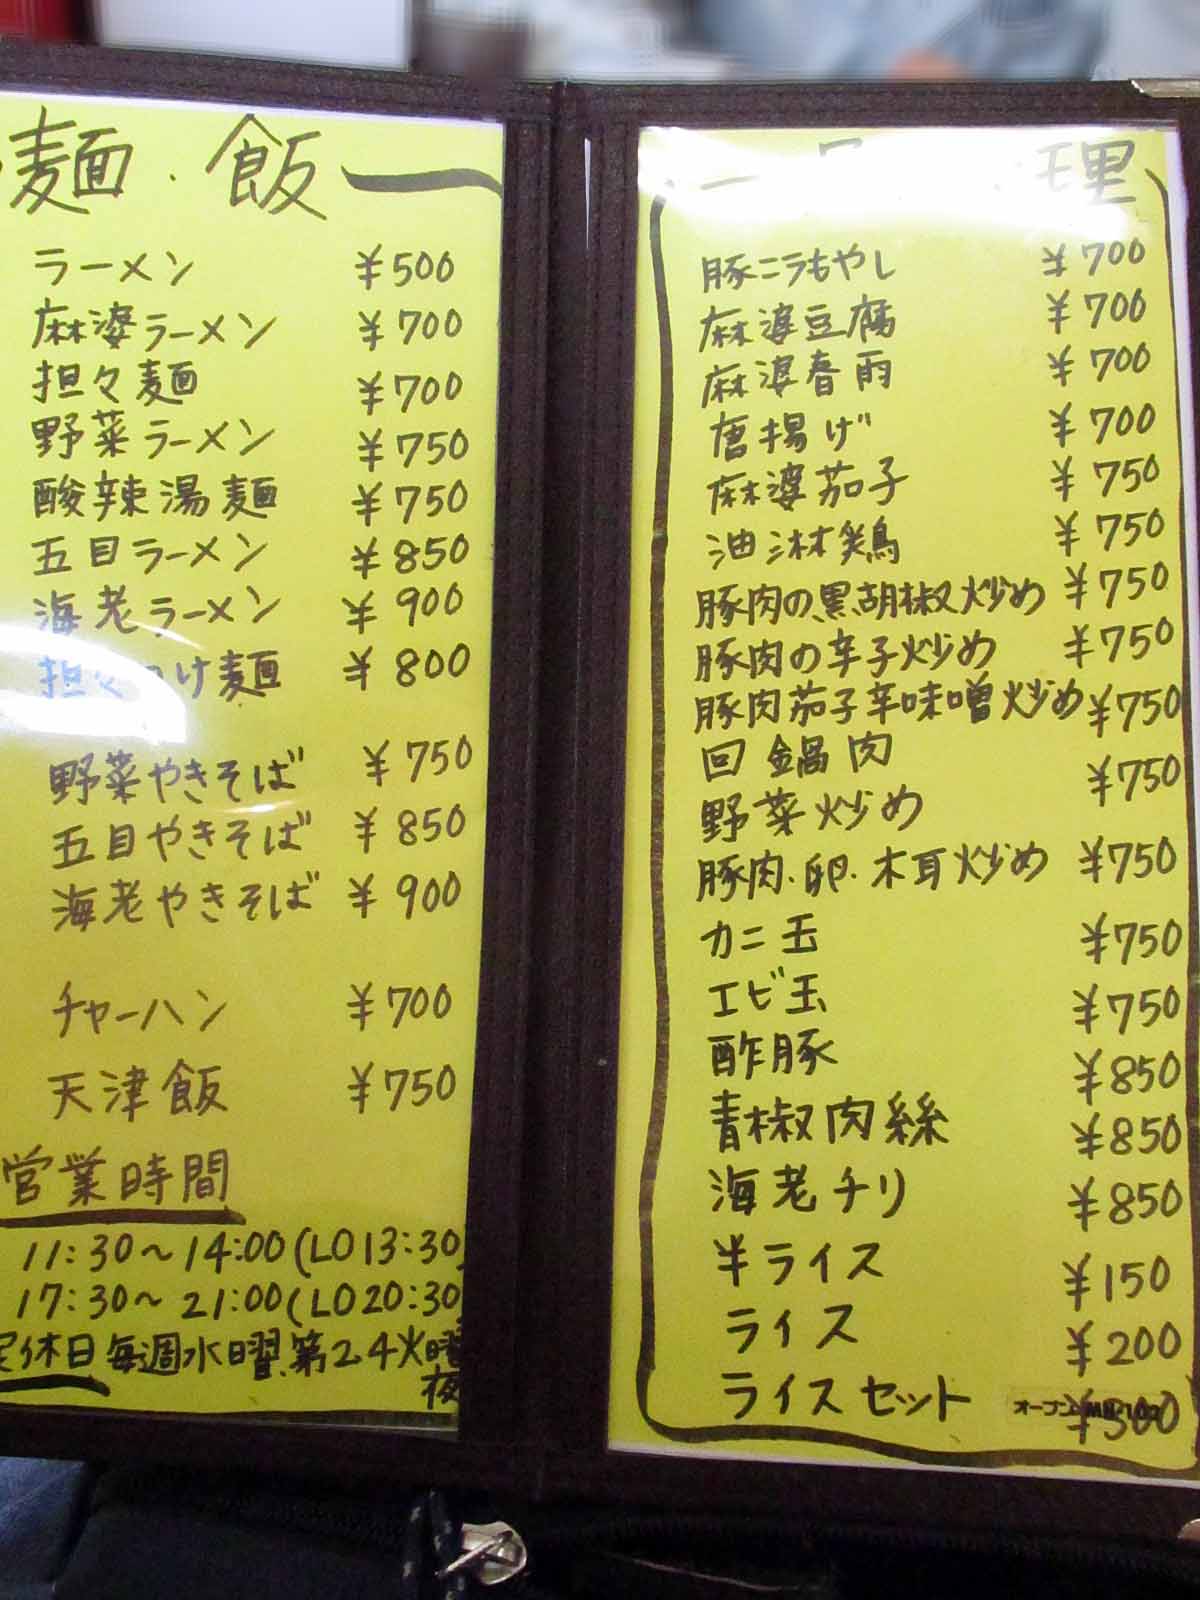 麺・飯
ラーメン ¥500
麻婆ラーメン ¥700
担々麺 ¥700
野菜ラーメン ¥750
酸辣湯麺 ¥750
五目ラーメン ¥850
海老ラーメン ¥900
担々つけ麺 ¥800
野菜やきそば ¥750
五目やきそば ¥850
海老やきそば ¥900
チャーハン ¥700
天津飯 ¥750
営業時間
11:30〜14:00(LO13:30)
17:30〜21:00(LO20:30
定休日 毎週水曜.第2.4火曜
夜
理
豚ニラもやし ¥700
麻婆豆腐 ¥700
麻婆春雨 ¥700
唐揚げ ¥700
麻婆茄子 ¥750
油淋鶏 ¥750
豚肉の黒胡椒炒め ¥750
豚肉の辛子炒め ¥750
豚肉茄子辛味噌炒め ¥750
回鍋肉 ¥750
野菜炒め
豚肉・卵・木耳炒め ¥750
カニ玉 ¥750
エビ玉 ¥750
酢豚 ¥850
青椒肉絲 ¥850
海老チリ ¥850
半ライス ¥150
ライス ¥200
ライスセット ¥300